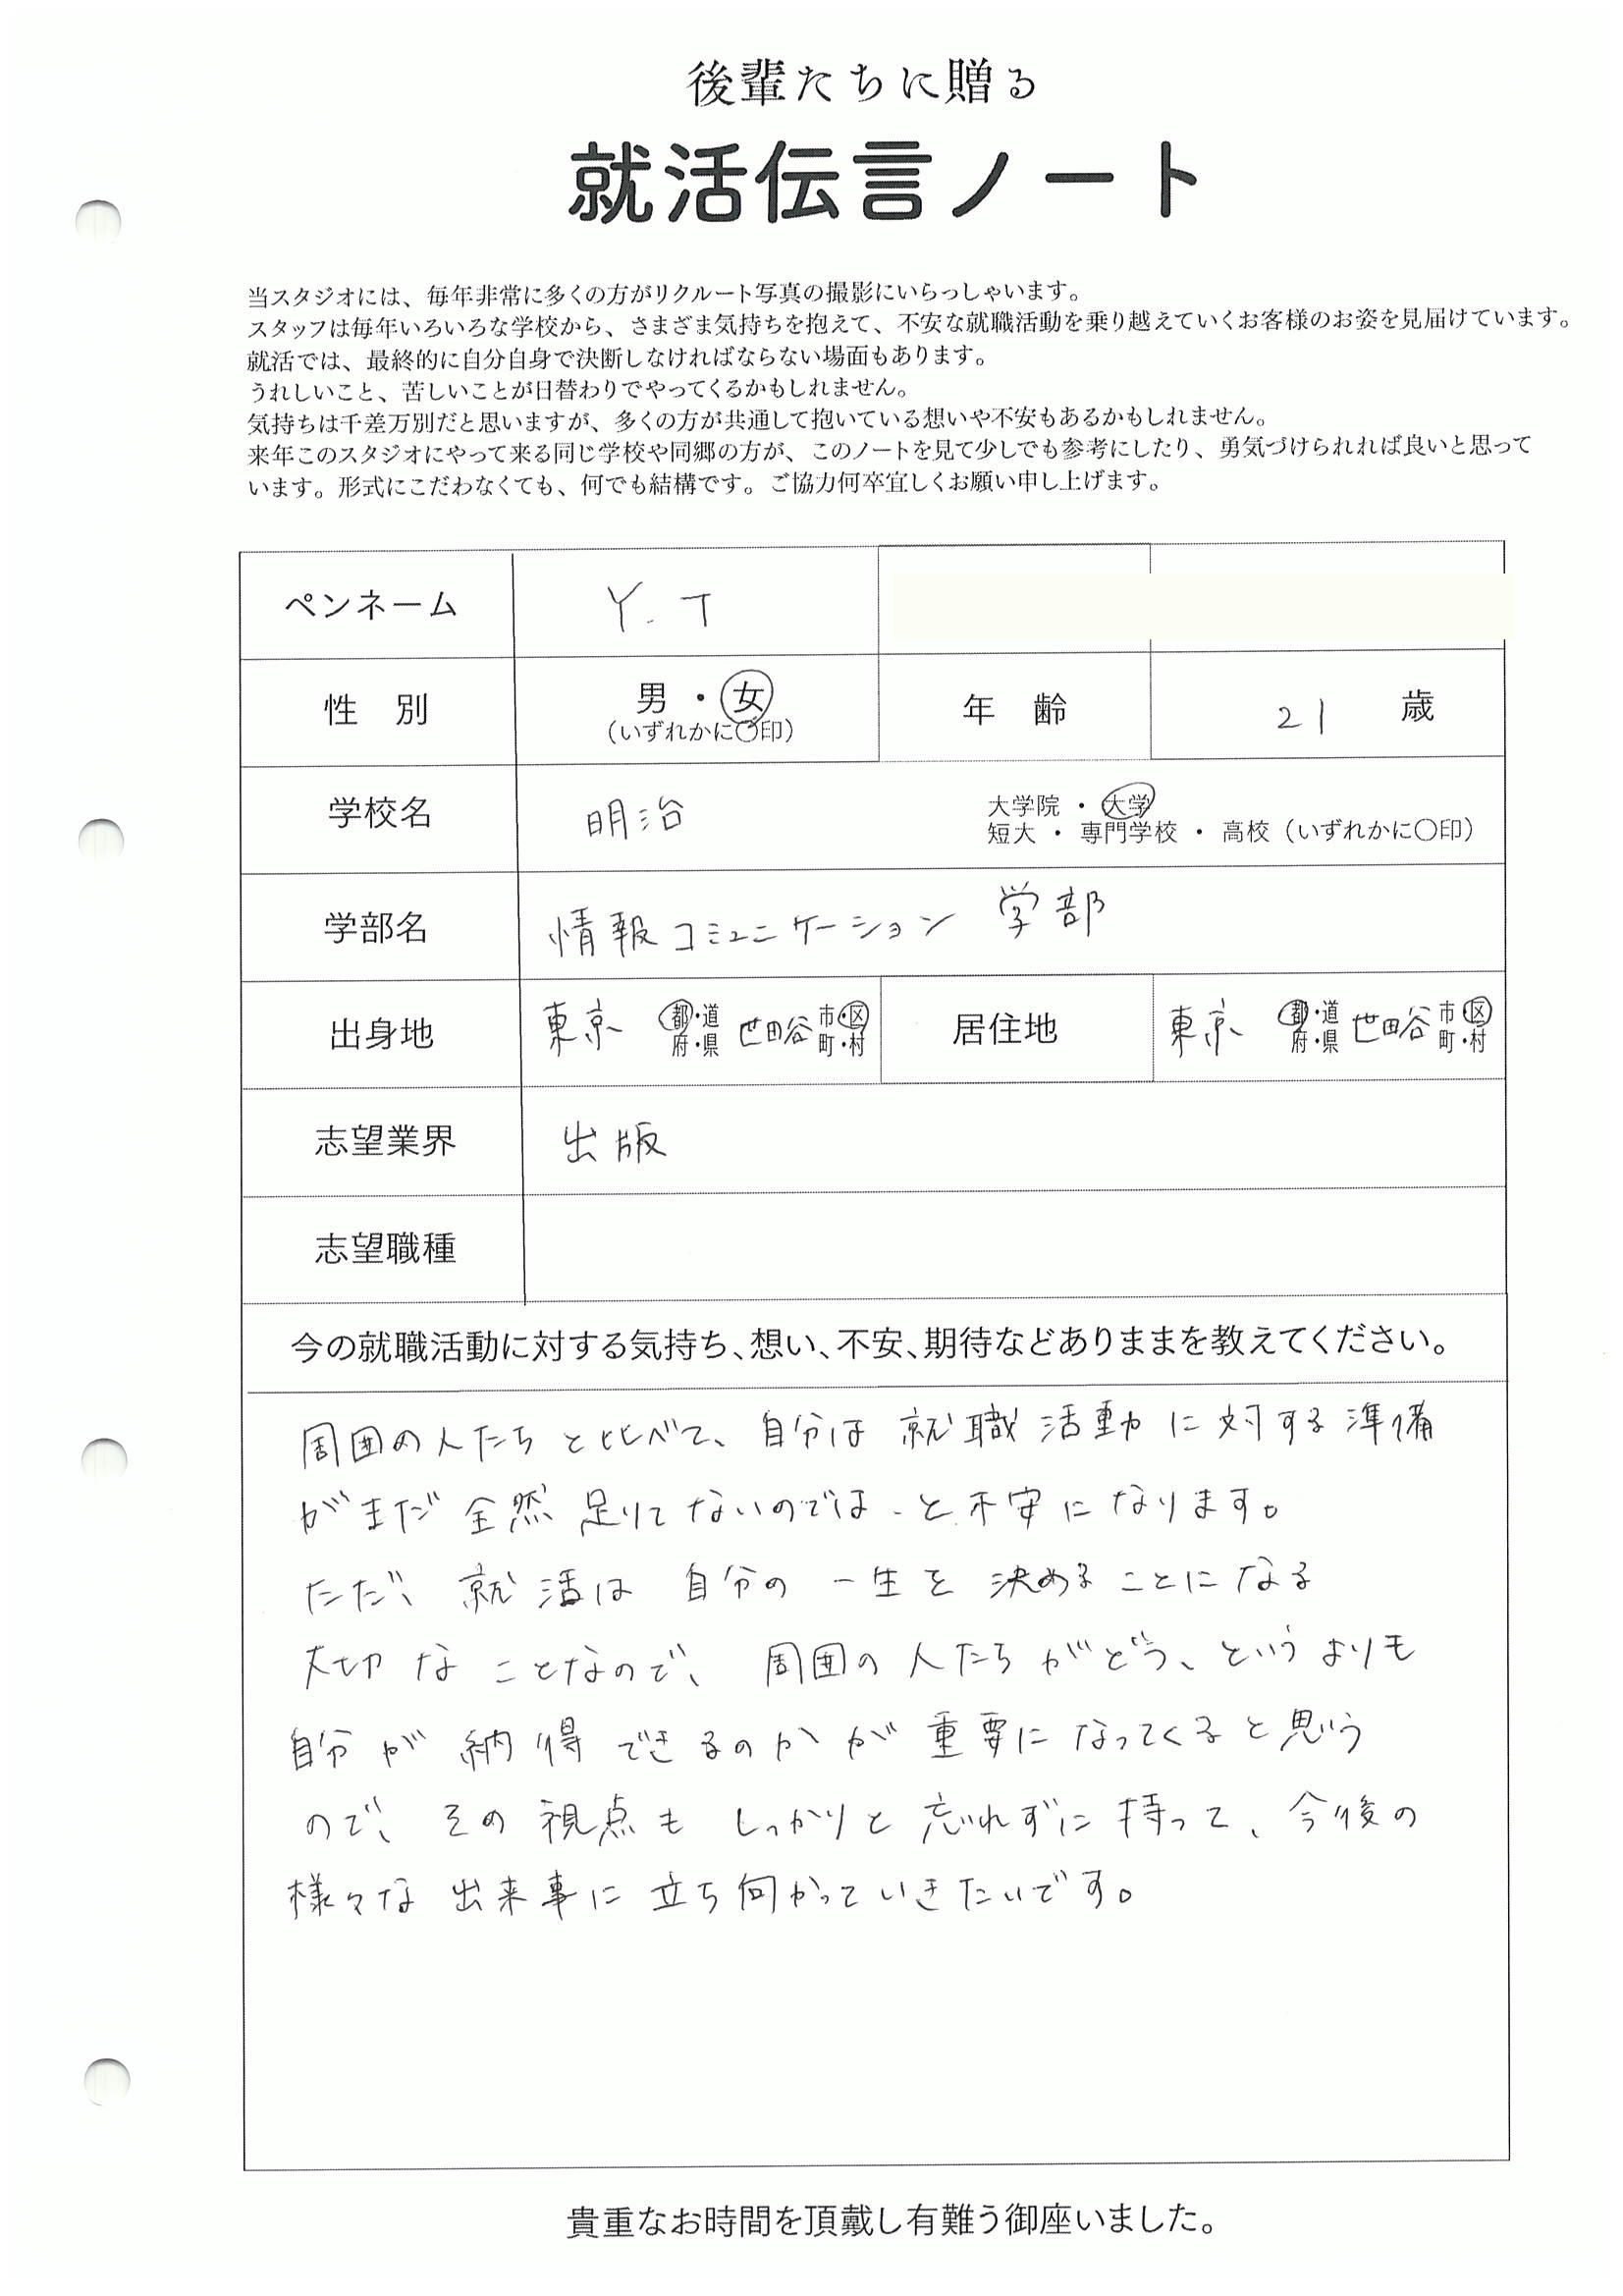 後輩たちに贈る
就活伝言ノート
当スタジオには、毎年非常に多くの方がリクルート写真の撮影にいらっしゃいます。
スタッフは毎年いろいろな学校から、さまざま気持ちを抱えて、不安な就職活動を乗り越えていくお客様のお姿を見届けています。
就活では、最終的に自分自身で決断しなければならない場面もあります。
うれしいこと、苦しいことが日替わりでやってくるかもしれません。
気持ちは千差万別だと思いますが、多くの方が共通して抱いている想いや不安もあるかもしれません。
来年このスタジオにやって来る同じ学校や同郷の方が、このノートを見て少しでも参考にしたり、勇気づけられれば良いと思って
います。形式にこだわなくても、何でも結構です。ご協力何卒宜しくお願い申し上げます。
ペンネーム Y.T
性 別 男 ・ 女 年 齢 21 歳
(いずれかに〇印)
学校名 明治 大学院 ・ 大学
短大 ・ 専門学校 ・ 高校 (いずれかに〇印)
学部名 情報コミュニケーション 学部
出身地 東京 都・道 世田谷 市・区 居住地 東京 都・道 世田谷 市・区
府・県 町・村 府・県 町・村
志望業界 出版
志望職種
今の就職活動に対する気持ち、想い、不安、期待などありままを教えてください。
周囲の人たちと比べて、自分は就職活動に対する準備
がまだ全然足りてないのでは、と不安になります。
ただ、就活は自分の一生を決めることになる
大切なことなので、周囲の人たちがどう、というよりも
自分が納得できるのかが重要になってくると思う
ので、その視点もしっかりと忘れずに持って、今後の
様々な出来事に立ち向かっていきたいです。
貴重なお時間を頂戴し有難う御座いました。